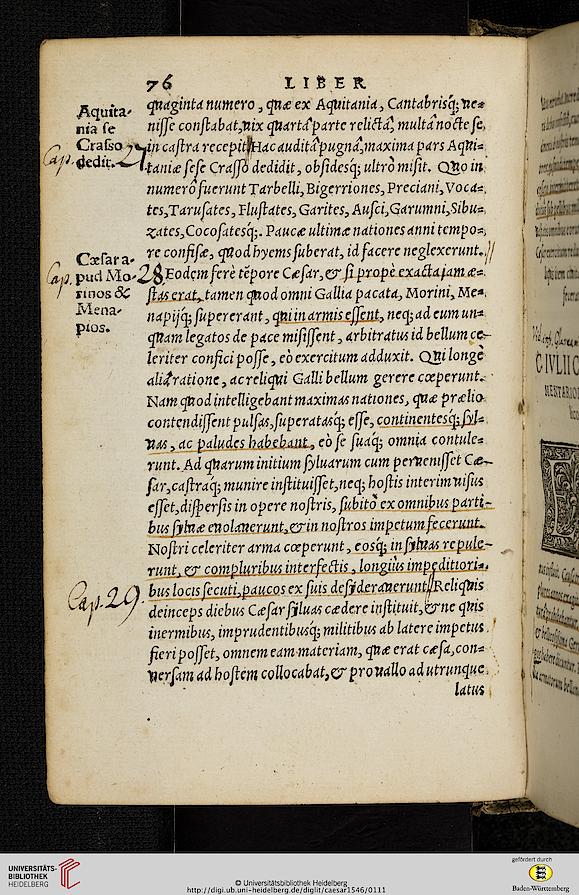 76 LIBER
quaginta numero, quæ ex Aquitania, Cantabrisq́; ue=
nisse constabat, uix quarta parte relicta, multa nocte se
in castra recepit. Hac audita pugna, maxima pars Aqui=
taniæ sese Crasso dedidit, obsidesq́; ultrò misit. Quo in
numero fuerunt Tarbelli, Bigerriones, Preciani, Voca=
tes, Tarusates, Flustates, Garites, Ausci, Garumni, Sibu=
zates, Cocosatesq́;. Paucæ ultimæ nationes anni tempo=
re confisæ, quod hyems suberat, id facere neglexerunt.
Eodem ferè tẽpore Cæsar, & si propè exacta jam æ=
stas erat, tamen quod omni Gallia pacata, Morini, Me=
napijq́; supererant, qui in armis essent, neq; ad eum un=
quam legatos de pace misissent, arbitratus id bellum ce=
leriter confici posse, eò exercitum adduxit. Qui longè
alia ratione, ac reliqui Galli bellum gerere cœperunt.
Nam quod intelligebant maximas nationes, quæ prælio
contendissent pulsas, superatasq́; esse, continentesq́; syl=
uas, ac paludes habebant, eò se suaq́; omnia contule=
runt. Ad quarum initium syluarum cum peruenisset Cæ=
sar, castraq́; munire instituisset, neq; hostis interim uisus
esset, dispersis in opere nostris, subitò ex omnibus parti=
bus syluæ euolauerunt, & in nostros impetum fecerunt.
Nostri celeriter arma cœperunt, eosq́; in syluas repule=
runt, & compluribus interfectis, longiùs impeditiori=
bus locis secuti, paucos ex suis desyderauerunt. Reliquis
deinceps diebus Cæsar syluas cædere instituit, & ne quis
inermibus, imprudentibusq́; militibus ab latere impetus
fieri posset, omnem eam materiam, quæ erat cæsa, con=
uersam ad hostem collocabat, & pro uallo ad utrunque
latus
Aquita-
nia se
Crasso
dedit.
Cap. 27
Cæsar a-
pud Mo-
rinos &
Mena-
pios.
Cap. 28
Cap. 29.
C IVLII C
MENTARIO
UNIVERSITÄTS-
BIBLIOTHEK
HEIDELBERG
© Universitätsbibliothek Heidelberg
http://digi.ub.uni-heidelberg.de/diglit/caesar1546/0111
gefördert durch
Baden-Württemberg